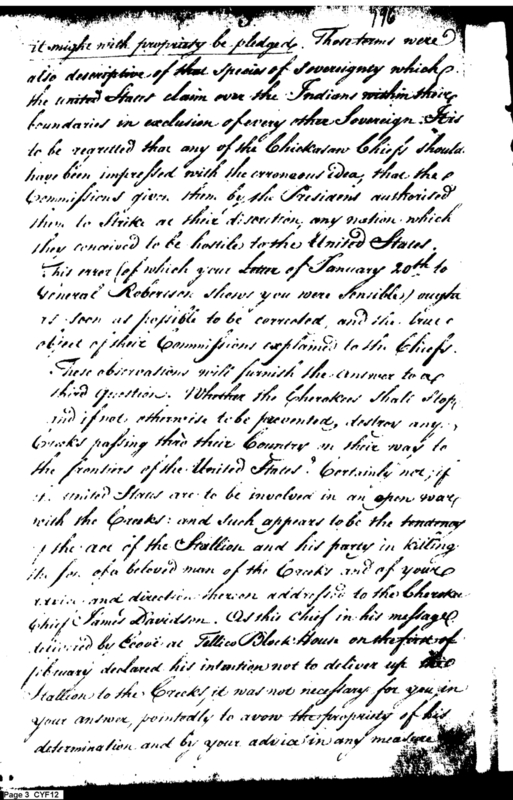 3.
196
it might with propriety be pledged. Those terms were
also descriptive of that species of sovereignty which
the united States claim over the Indians within their
boundaries in exclusion of every other Sovereign. It is
to be regretted that any of the Chickasaw Chiefs should
have been impressed with the erroneous idea, that the
Commissions given them by the President authorised
them to Strike at their discretion, any nation which
they conceived to be hostile to the United States.
This error (of which your Letter of January 20th to
General Robertson shows you were sensible) ought
as soon as possible to be corrected, and the true
object of their Commissions explained to the Chiefs.
These observations will furnish the answer to a
third Question. Whether the Cherokees shall stop,
and if not otherwise to be prevented, destroy any
Creeks passing thro their Country on their way to
the frontiers of the United States? Certainly not; if
united States are to be involved in an open war
with the Creeks: and such appears to be the tendency
of the act of the Stallion and his party in killing
the son of a beloved man of the Creeks and of your
advice and direction thereon addressed to the Cherokee
Chief James Davidson. As this Chief in his message
delivered by at Tellico Block House on the first of
february declared his intention not to deliver up the
Stallion to the Creeks, it was not necessary for you in
your answer, pointedly to avow the propriety of his
determination and by your advice in any measure
Page 3 CYF12